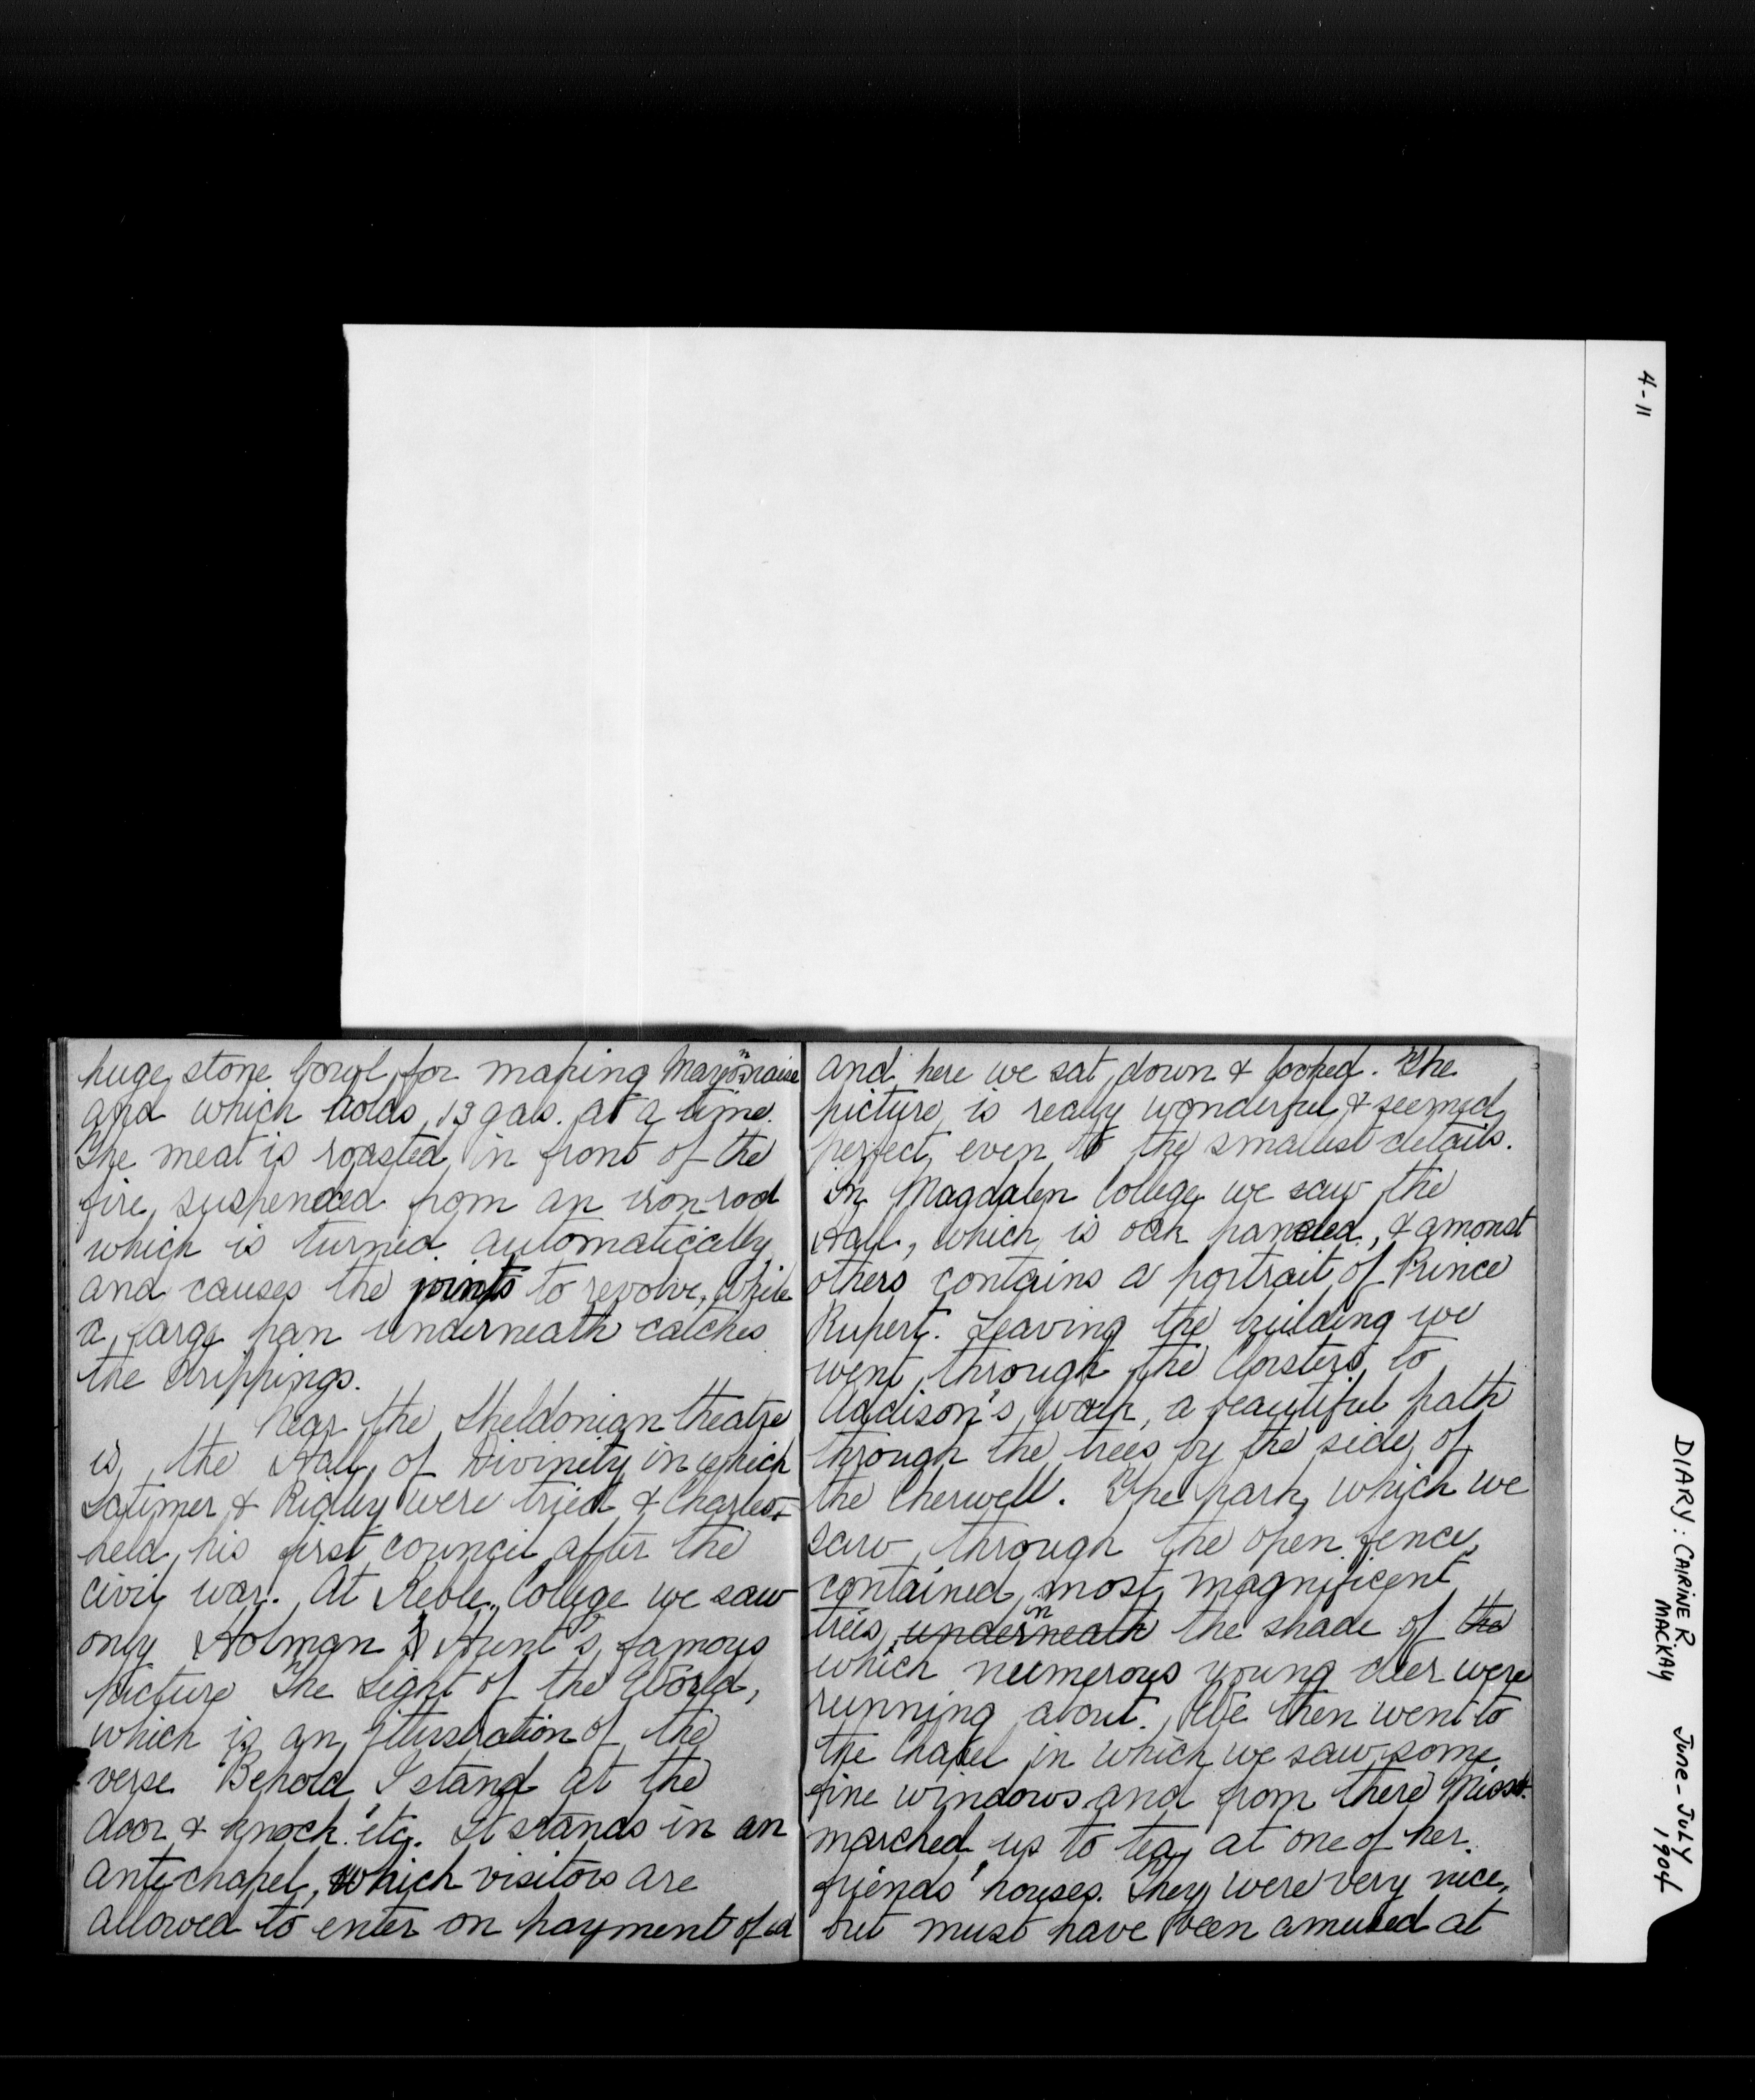 huge stone bowl for making Mayonnaise
and which holds 13 gals. at a time.
The meat is roasted in front of the
fire, suspended from an iron rod
which is turned automatically
and causes the joints to revolve, while
a large pan underneath catches
the drippings.
Near the Sheldonian theatre
is the Hall of Divinity in which
Latimer & Ridley were tried & Charles I
held his first council after the
civil war. At Keble College we saw
only Holman Hunt's famous
picture The Light of the World,
which is an illustration of the
verse "Behold I stand at the
door & knock" etc. It stands in an
antechapel, which visitors are
allowed to enter on payment of
and here we sat down & looked. The
picture is really wonderful & seemed
perfect even to the smallest details.
In Magdalen College we saw the
Hall, which is oak panelled, & amonst
others contains a portrait of Prince
Rupert. Leaving the building we
went through the Cloisters to
Addison's walk, a beautiful path
through the trees by the side of
the Cherwell. The park, which we
saw through the open fence,
contained most magnificent
trees, underneath in the shade of the
which numerous young deer were
running about. We then went to
the Chapel in which we saw some
fine windows and from there Miss
marched us to tea at one of her
friends' houses. They were very nice,
but must have been amused at
4-11
DIARY: CAIRINE R. MACKAY
June-July 1904